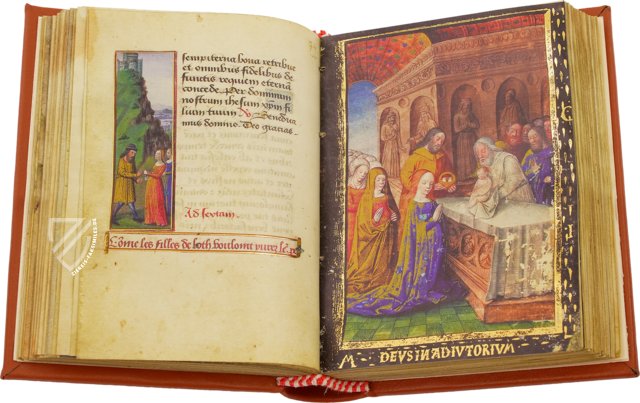 sempiterna bona retribue
et omnibus fidelibus de
functis requiem eternā
concede. Per dominum
nostrum ihesum xp̄m fi
lium tuum. Benedica
mus domino. Deo gracias.
Ad sextam.
Cōme les filles de loth
ZIEREIS-FAKSIMILES.DE
M DEVS IN ADIVTORIVM